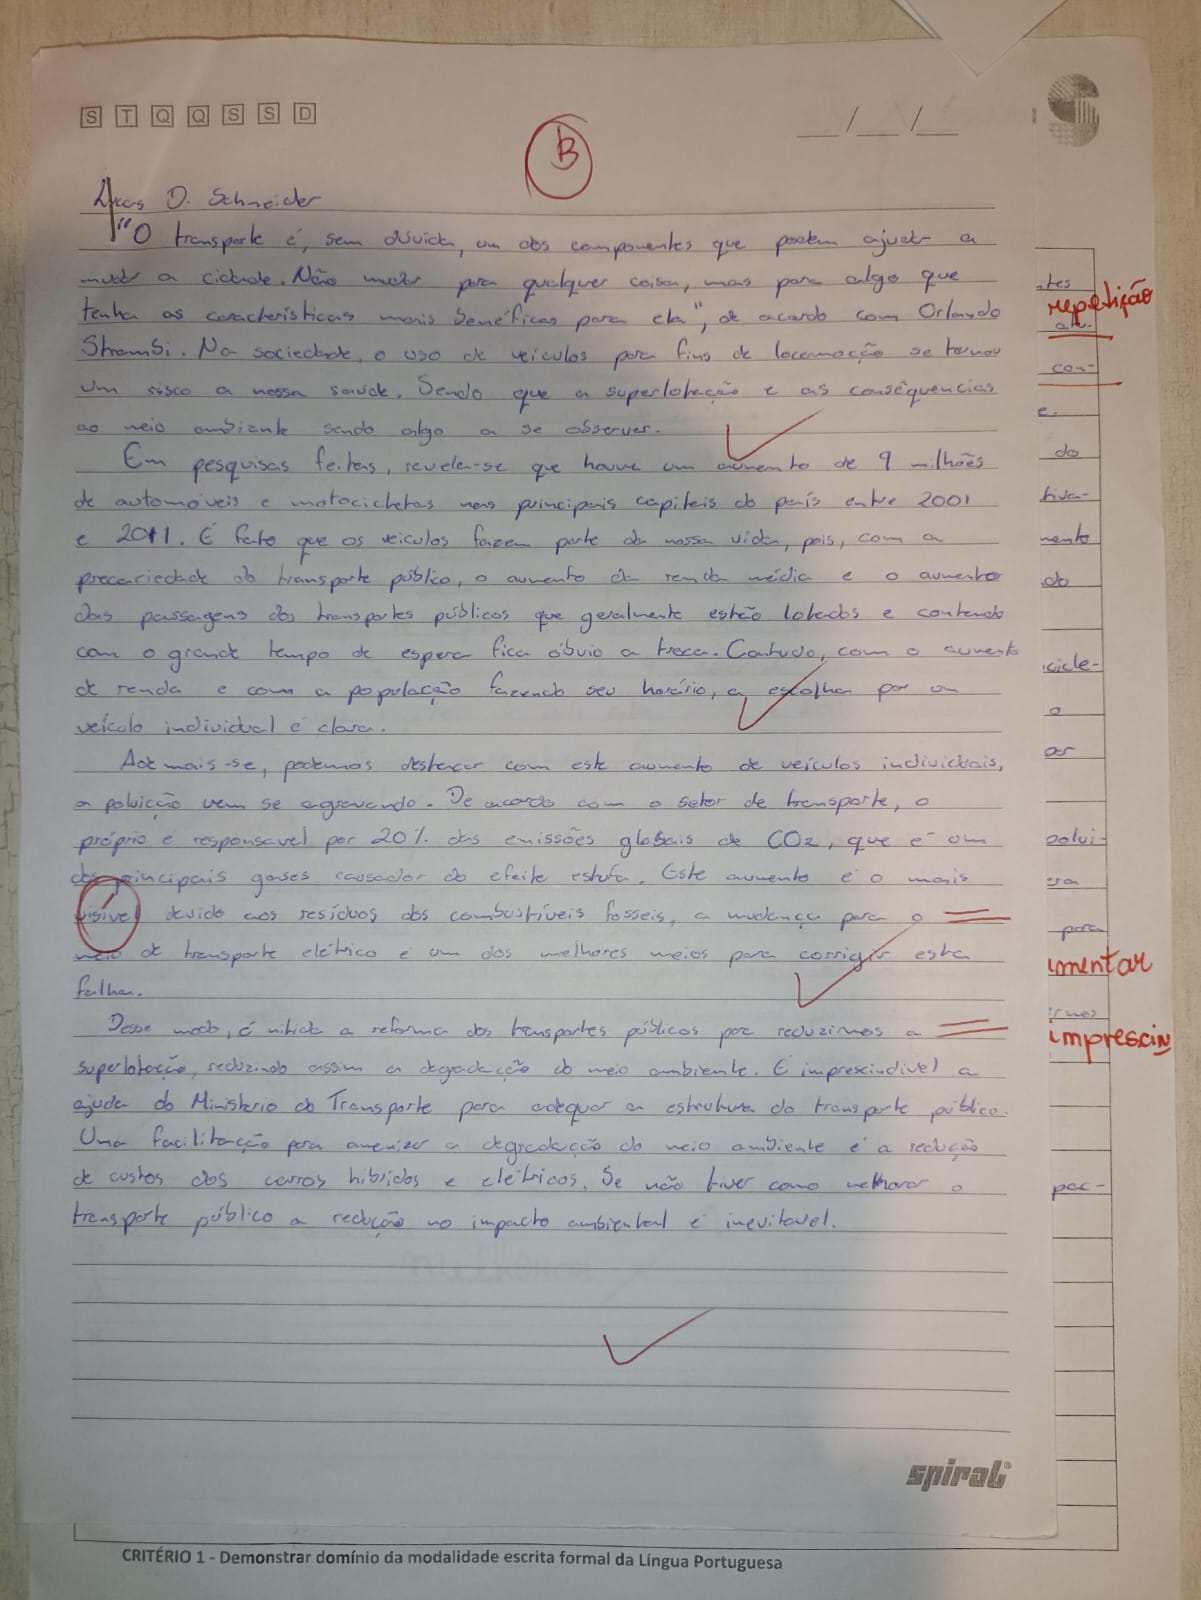 S T Q Q S S D
__/__/__
B
Lucas D. Schneider
"O transporte é, sem dúvida, um dos componentes que podem ajudar a
mudar a cidade. Não mudar para qualquer coisa, mas para algo que
tenha as características mais benéficas para ela", de acordo com Orlando
Strambi. Na sociedade, o uso de veículos para fins de locomoção se tornou
um risco a nossa saúde. Sendo que a superlotação e as consequências
ao meio ambiente sendo algo a se observar.
Em pesquisas feitas, revela-se que houve um aumento de 9 milhões
de automóveis e motocicletas nas principais capitais do país entre 2001
e 2011. É fato que os veiculos fazem parte da nossa vida, pois, com a
precariedade do transporte público, o aumento da renda média e o aumento
das passagens dos transportes públicos que geralmente estão lotados e contendo
com o grande tempo de espera fica óbvio a troca. Contudo, com o aumento
de renda e com a população fazendo seu horário, a escolha por um
veículo individual é clara.
Ade mais-se, podemos destacar com este aumento de veículos individuais,
a poluição vem se agravando. De acordo com o setor de transporte, o
próprio é responsavel por 20% das emissões globais de CO2, que é um
dos principais gases causador do efeito estufa. Este aumento é o mais
visível devido aos resíduos dos combustíveis fosseis, a mudança para o
meio de transporte elétrico é um dos melhores meios para corrigir esta
falha.
Desse modo, é nitida a reforma dos transportes públicos para reduzirmos a
superlotação, reduzindo assim a degradação do meio ambiente. É imprescindivel a
ajuda do Ministerio do Transporte para adequar a estrutura do transporte público.
Uma facilitação para amenizar a degradação do meio ambiente é a redução
de custos dos carros hibridos e elétricos. Se não tiver como melhorar o
transporte público a redução no impacto ambiental é inevitavel.
spiral
tes
repetição
con-
e.
do
tiva-
mento
do
cicle-
o
ar
polui-
para
umentar
imprescin
pac-
CRITÉRIO 1 - Demonstrar domínio da modalidade escrita formal da Língua Portuguesa